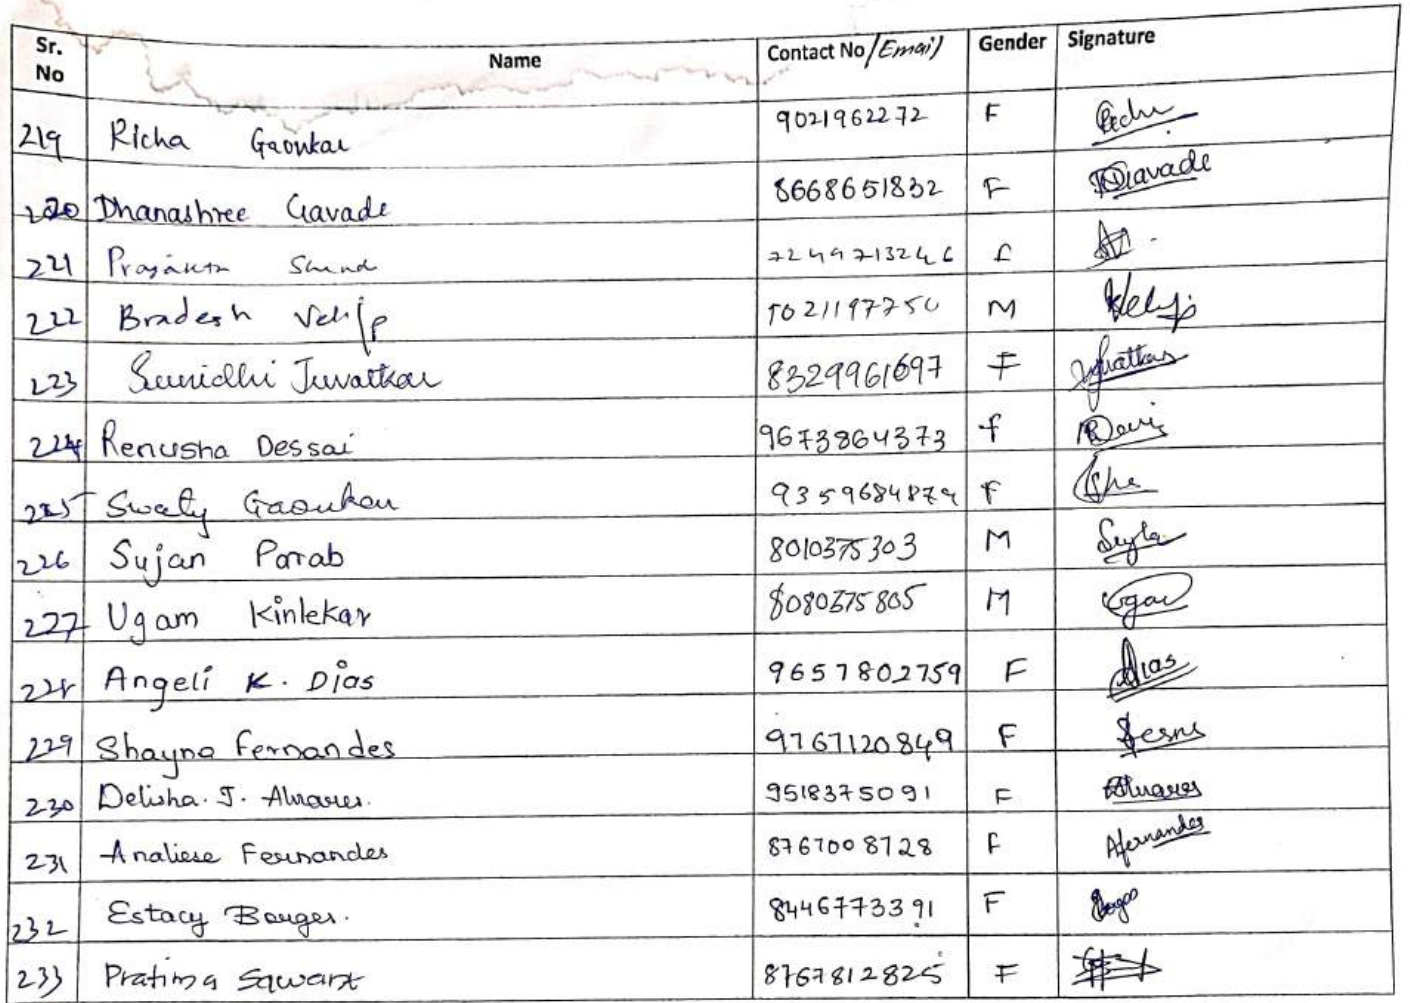 Sr. No Name Contact No/Email) Gender Signature
219 Richa Gaonkar 9021962272 F
220 Dhanashree Gavade 8668651832 F Gavade
221 F
222 Bradesh Velip M Velip
223 Sunidhi Juvatkar 8329961697 F Juvatkar
224 Renusha Dessai 9673864373 f
225 Swaty Gaonkar F
226 Sujan Parab 8010375303 M
227 Ugam Kinlekar 8080375805 M Ugam
228 Angeli K. Dias 9657802759 F Dias
229 Shayna Fernandes 9767120849 F Ferns
230 Delisha. J. Alvares. 9518375091 F Alvares
231 Analiese Fernandes 8767008728 F Afernandes
232 Estacy Borges. 8446773391 F
233 Pratima Sawant 8767812825 F